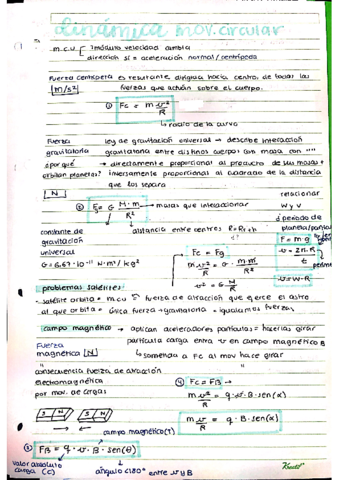 dinámica mov. circular
m.c.u módulo velocidad cambia
dirección si = aceleración normal / centrípeta
Fuerza centrípeta es resultante dirigida hacia centro de todas las
[m/s²] fuerzas que actúan sobre el cuerpo.
① Fc = m v²/R
→ radio de la curva
Fuerza ley de gravitación universal → describe interacción
gravitatoria gravitatoria entre distintos cuerpos con masa con ""
¿por qué → directamente proporcional al producto de sus masas
orbitan planetas? inversamente proporcional al cuadrado de la distancia
que los separa
[N] relacionar
② Fg = G M·m/R² → masas que interaccionan W y v
constante de distancia entre centros R = RT+h
gravitación
universal
G = 6.67·10⁻¹¹ N·m²/kg²
Fc = Fg
m v²/R = G · M·m/R²
v² = G M/R
período de
F = m g
v = 2π·R/t
v = W·R
problemas satélites:
· satélite orbita = mcu = fuerza de atracción que ejerce el astro
al que orbita = única fuerza gravitatoria = igualamos fuerzas
campo magnético → aplican aceleradores partículas = hacerlas girar
Fuerza partícula carga entre v en campo magnético B
magnética [N] ↳ sometida a Fc al mov hacer girar
consecuencia fuerza de atracción
electromagnética ④ Fc = FB →
por mov. de cargas m v²/R = q·v·B·sen(α)
S N S N m v/R = q·B·sen(α)
campo magnético (T)
③ FB = q·v·B·sen(θ)
valor absoluto
carga (C) ángulo <180° entre v y B